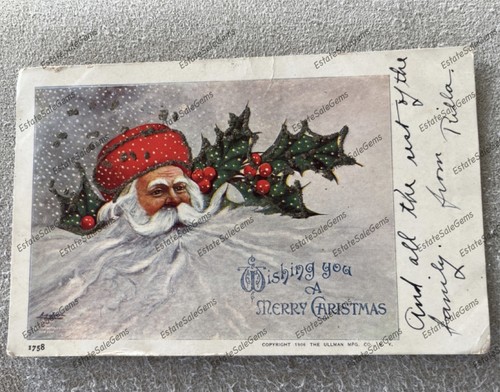 Wishing you
A
MERRY CHRISTMAS
And all the rest of the
family. from Tilla.
1758
COPYRIGHT 1906 THE ULLMAN MFG. CO., N. Y.
EstateSaleGems